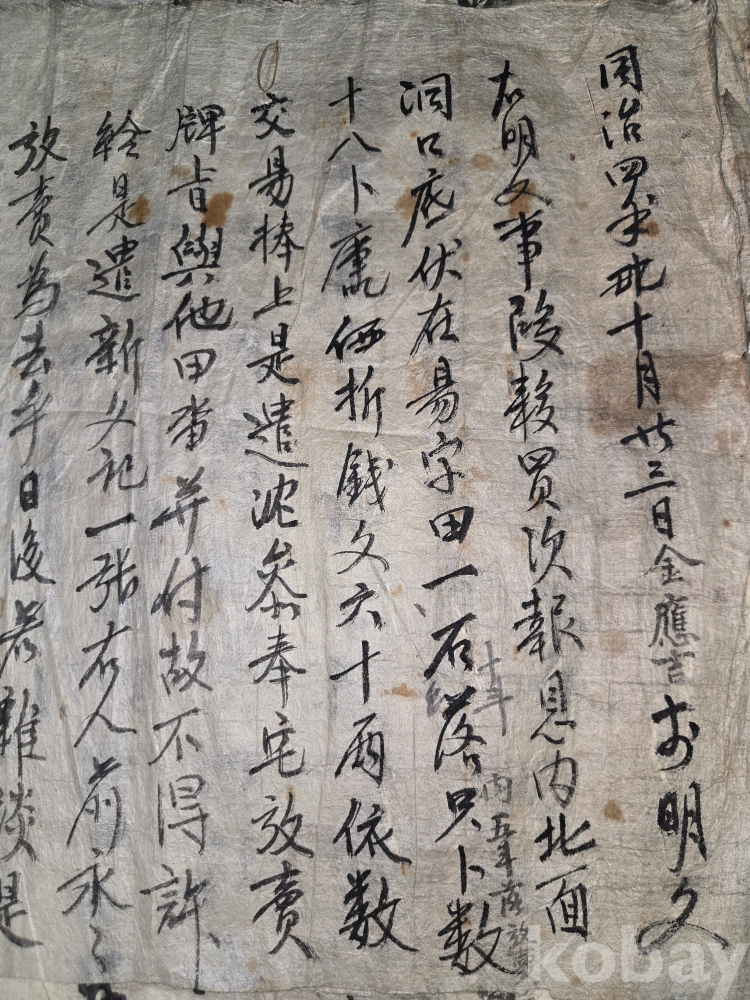 同治四年 十月廿三日金應吉前明文
右明文事段 買次報恩內北面
洞口底伏在易字田一石落只卜數
十年
內五斗落放賣
十八卜庫価折錢文六十兩依數
交易捧上是遣沈參奉宅放賣
牌旨與他田畓并付故不得許
給是遣新文記一張右人前永〻
放賣為去乎日後若雜談是
kobay